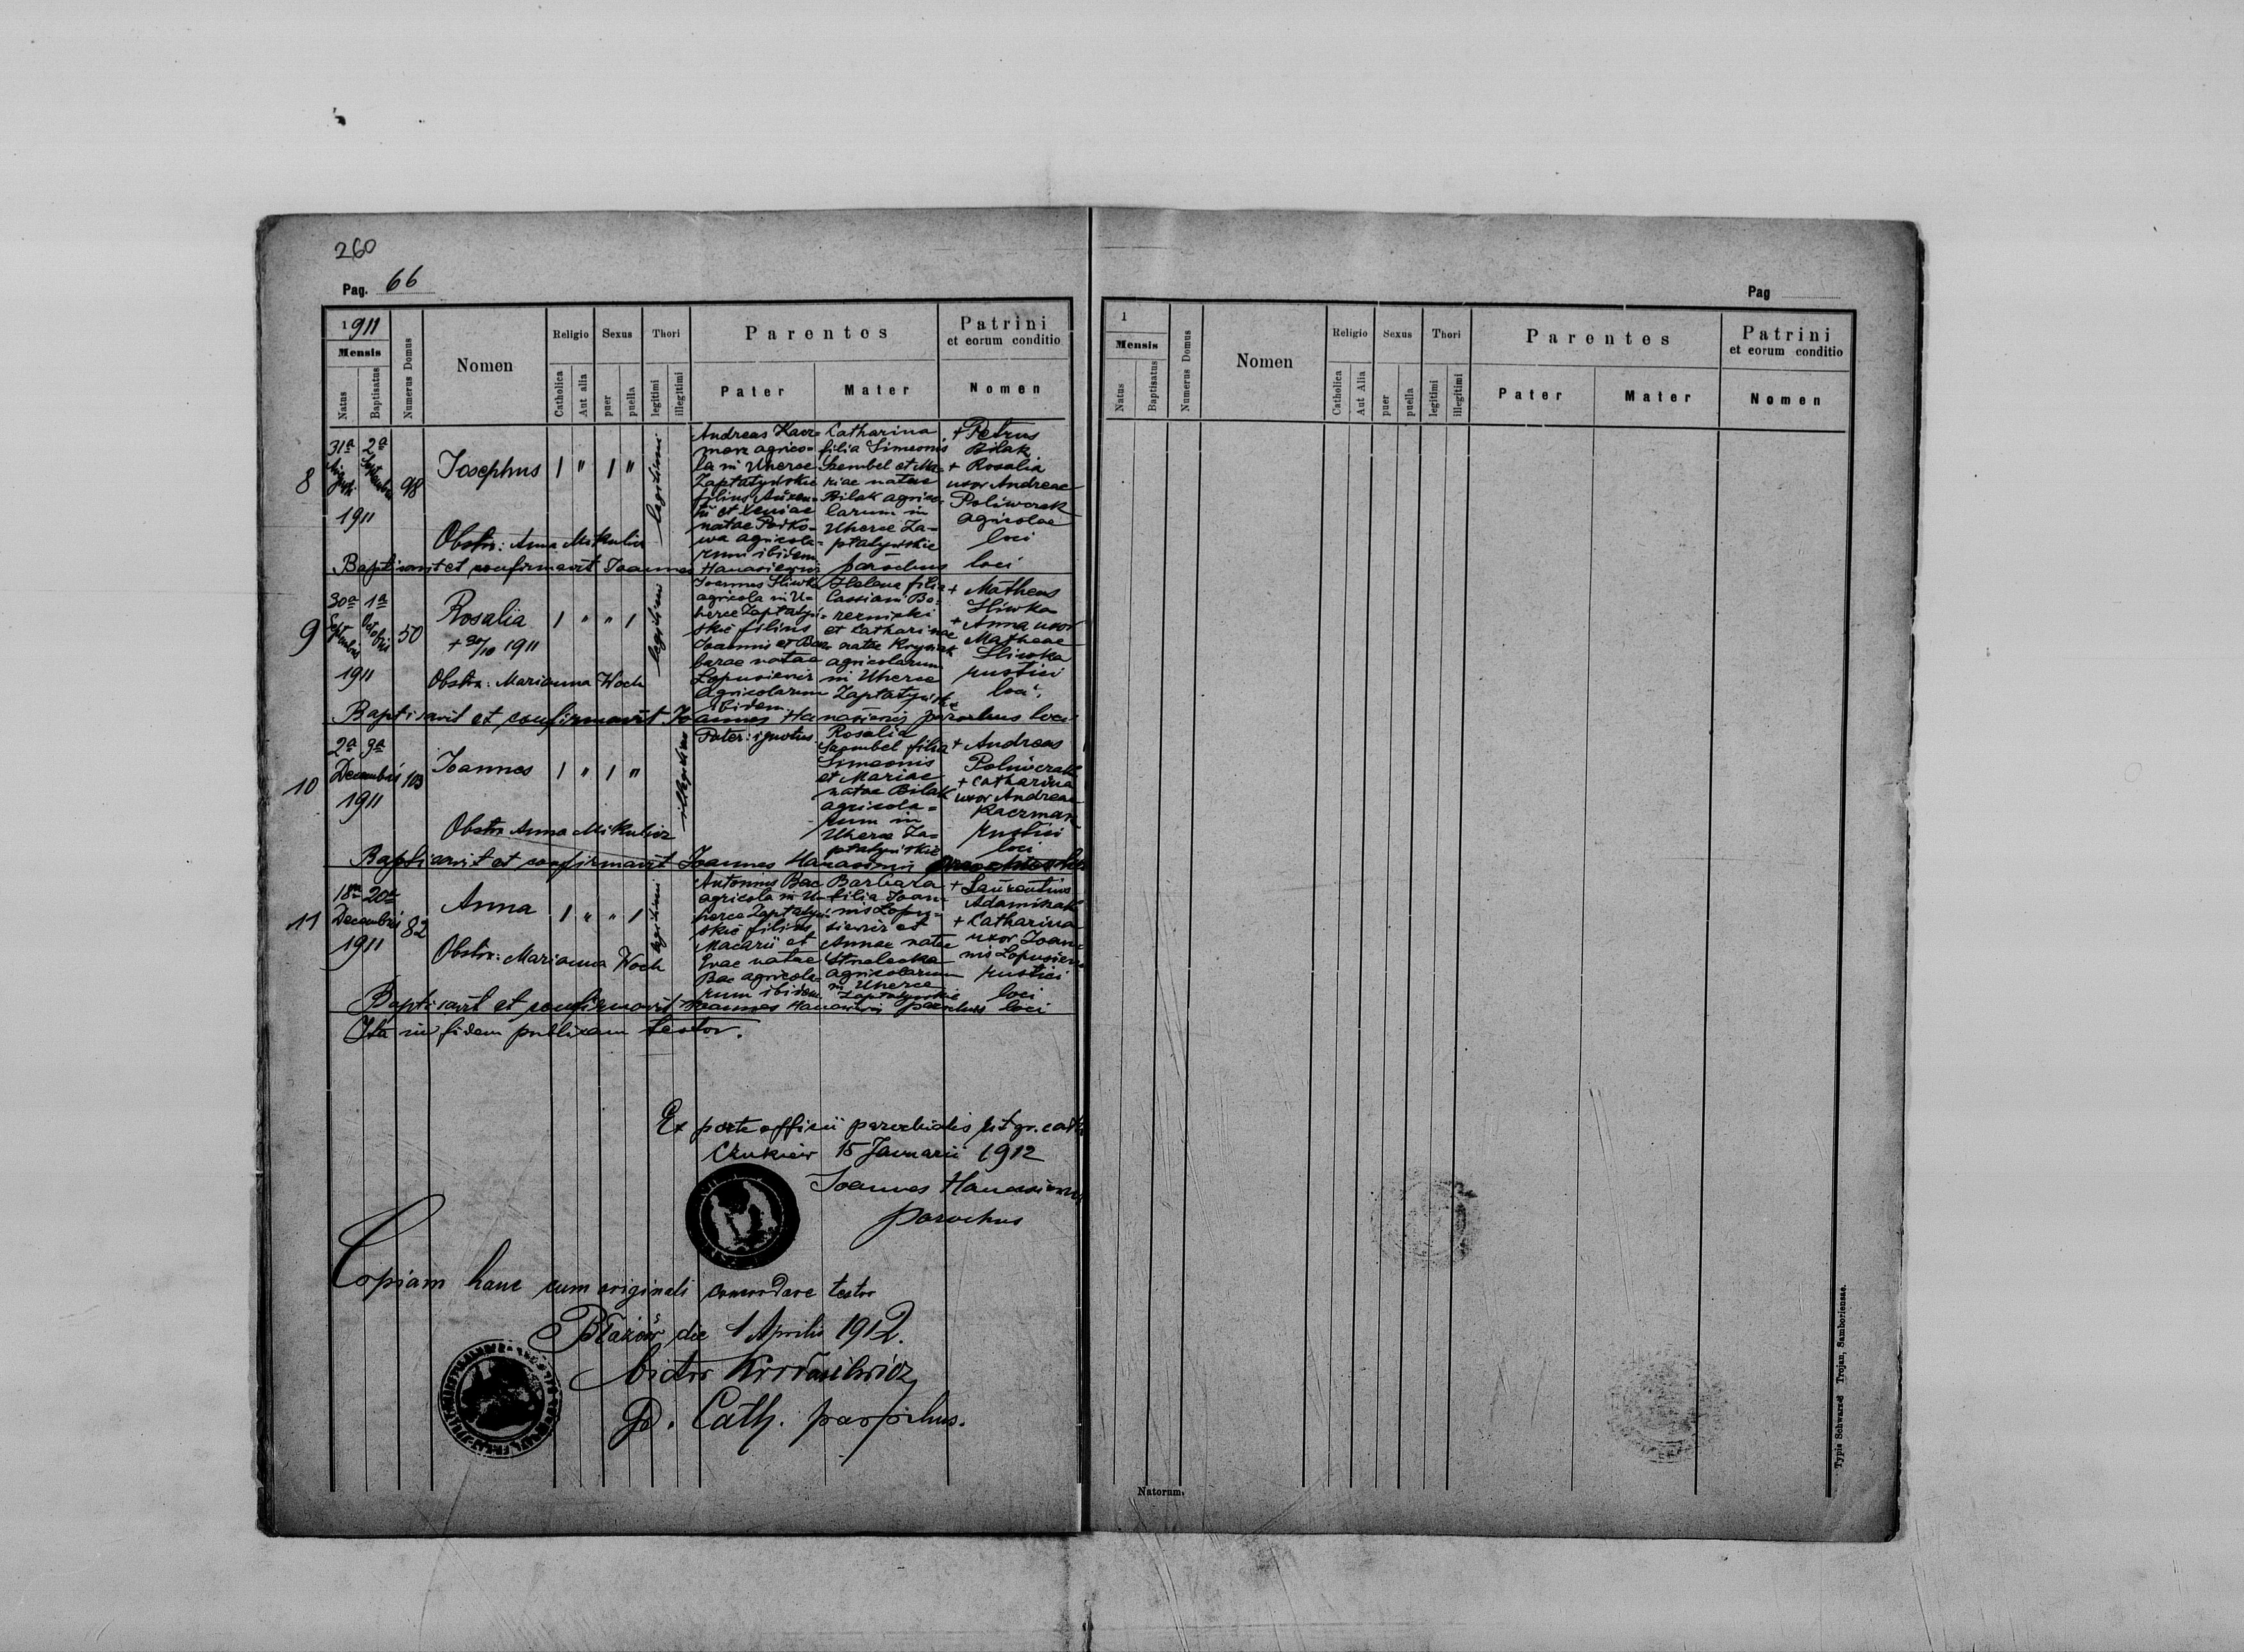 260
Pag. 66
1911
Mensis
Natus
Baptisatus
Numerus Domus
Nomen
Religio
Catholica
Aut alia
Sexus
puer
puella
Thori
legitimi
illegitimi
Parentes
Pater
Mater
Patrini
et eorum conditio
Nomen
8
31a 2a
Augusti Septembris
1911
98
Josephus
1 " 1 "
legitimi
Obstr: Anna Mikulicz
Andreas Kacz=
marz agrico=
la in Uherce
Zaptatyńskie
filius
et Xeniae
natae Perko=
wa agricola=
rum ibidem
Catharina
filia Simeonis
Szembel et Ma=
riae natae
Bilak agrico=
larum in
Uherce Za=
ptatyńskie
+ Petrus
Bilak
+ Rosalia
uxor Andreae
Poliwczak
agricolae
loci
Baptisavit et confirmavit Joannes Hanasiewicz parochus loci
9
30a 1a
Septembris Octobris
1911
50
Rosalia
+ 30/10 1911
1 " " 1
legitimi
Obstr: Marianna Woch
Joannes Sliwka
agricola in U=
herce Zaptatyń=
skie filius
Joannis et Bar=
barae natae
Lopusiewicz
agricolarum
ibidem
Helena filia
Cassiani Bo=
rczniski
et Catharinae
natae Krysiak
agricolarum
in Uherce
Zaptatyńskie
+ Matheus
Sliwka
+ Anna uxor
Matheae
Sliwka
rustici
loci.
Baptisavit et confirmavit Joannes Hanasiewicz parochus loci
10
2a 9a
Decembris
1911
103
Joannes
1 " 1 "
illegitimi
Obstr Anna Mikulicz
Pater: ignotus
Rosalia
Szembel filia
Simeonis
et Mariae
natae Bilak
agricola=
rum in
Uherce Za=
ptatyńskie
+ Andreas
Poliwczak
+ Catharina
uxor Andreae
Kaczmarz
rustici
loci
Baptisavit et confirmavit Joannes Hanasiewicz parochus loci
11
18a 20a
Decembris
1911
82
Anna
1 " " 1
legitimi
Obstr: Marianna Woch
Antonius Bac
agricola in U=
herce Zaptatyń=
skie filius
Macarii et
Evae natae
Bac agricola=
rum ibidem
Barbara
filia Joan=
nis Lopu=
siewicz et
Annae natae
Strzelecka
agricolarum
in Uherce
Zaptatyńskie
+ Laurentius
Adamczak
+ Catharina
uxor Joan=
nis Lopusiew.
rustici
loci
Baptisavit et confirmavit Joannes Hanasiewicz parochus loci
Ita in fidem publicam testor.
Ex parte officii parochialis rit gr. cath
Czukiew 15 Januarii 1912
Joannes Hanasiewicz
parochus
Copiam hanc cum originali concordare testor
Błażów die 1 Aprilis 1912.
Gr. Cath. parochus.
Pag
1
Mensis
Natus
Baptisatus
Numerus Domus
Nomen
Religio
Catholica
Aut Alia
Sexus
puer
puella
Thori
legitimi
illegitimi
Parentes
Pater
Mater
Patrini
et eorum conditio
Nomen
Natorum.
Typis Schwarz & Trojan, Samboriensae.